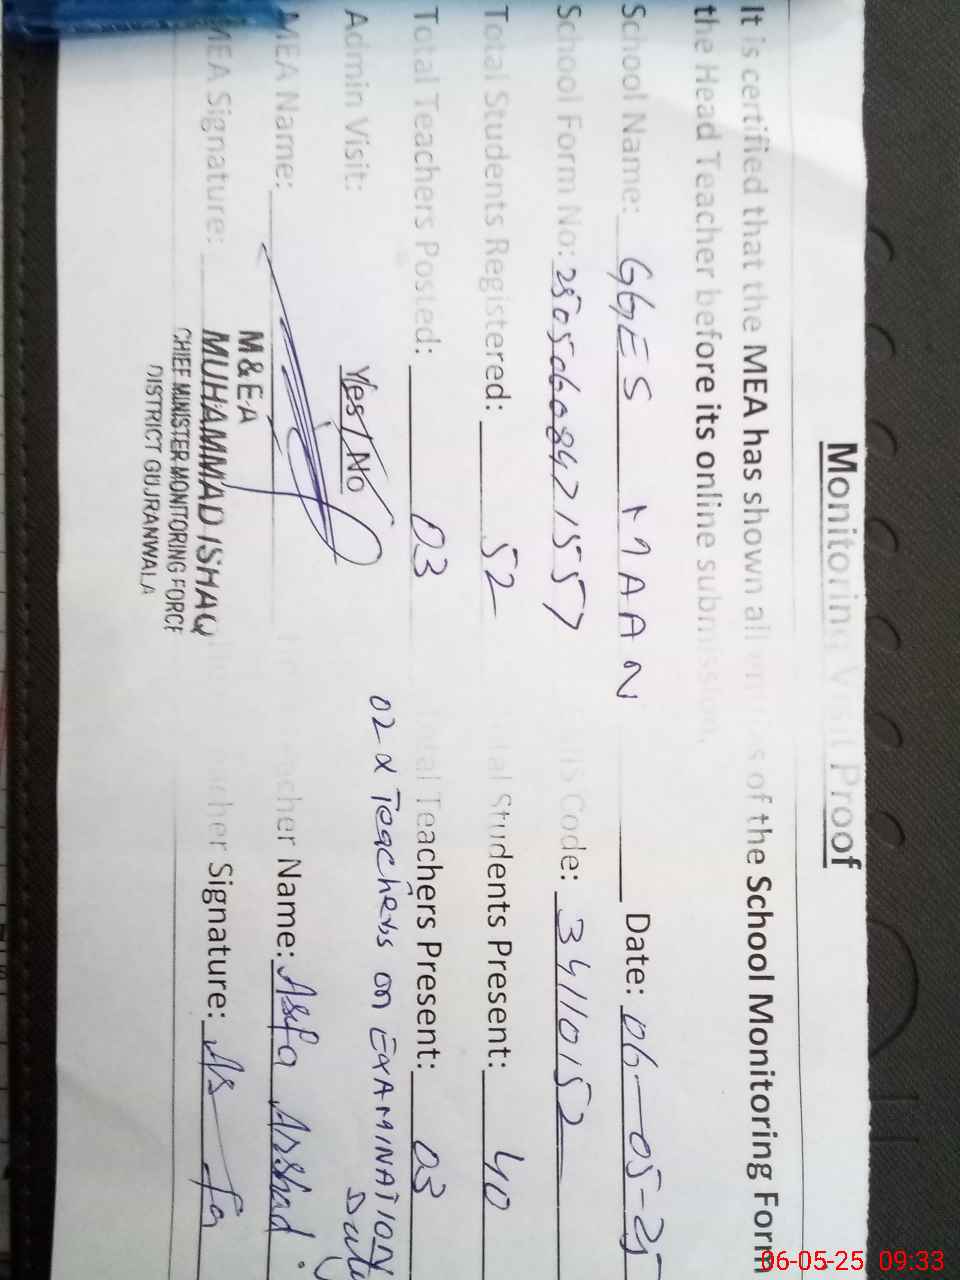 Monitoring Visit Proof
It is certified that the MEA has shown all entries of the School Monitoring Form
the Head Teacher before its online submission.
School Name: GGES MAAN Date: 06-05-25
School Form No: 2505060847 1557 Code: 34110152
Total Students Registered: 52 Total Students Present: 40
Total Teachers Posted: 03 Total Teachers Present: 03
Admin Visit: Yes/No 02 x Teachers on EXAMINATION
Duty
MEA Name: Teacher Name: Asfa Arshad
MEA Signature: Teacher Signature: Asfa
M&E-A
MUHAMMAD ISHAQ
CHIEF MINISTER MONITORING FORCE
DISTRICT GUJRANWALA
06-05-25 09:33